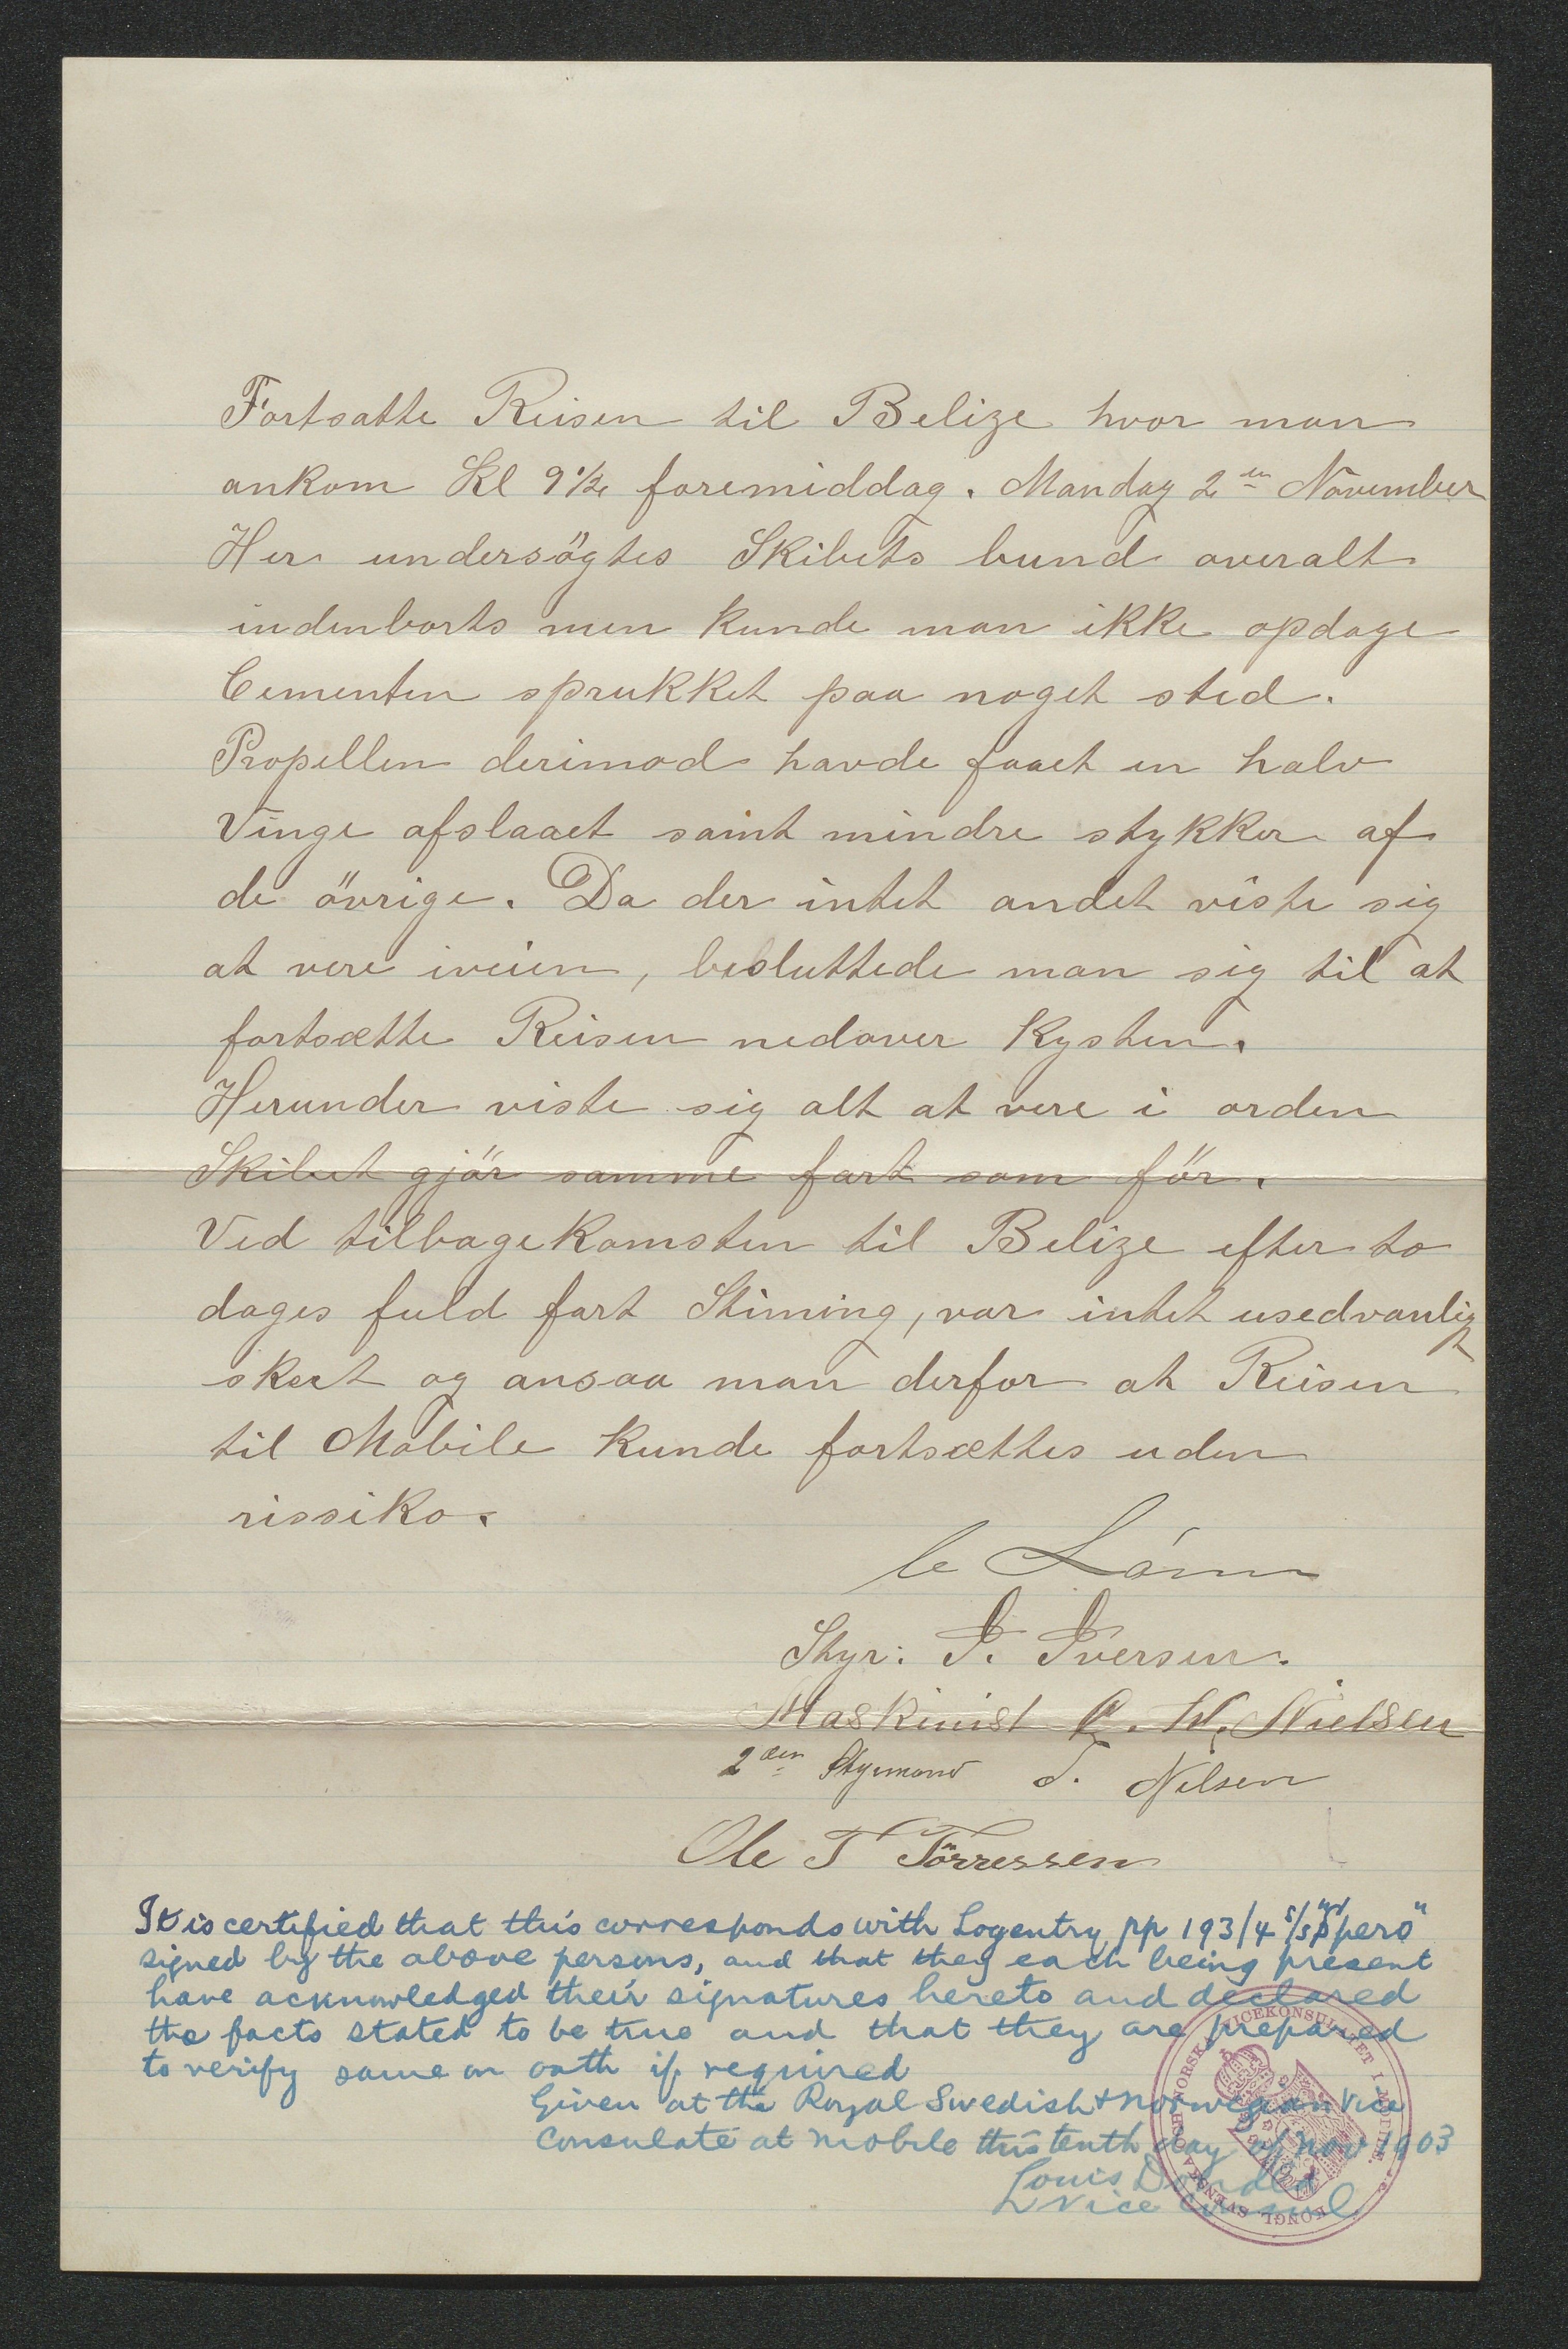 Fortsatte Reisen til Belize hvor man
ankom Kl 9½ foremiddag. Mandag 2en November
Her undersögtes Skibets bund overalt
indenborts men kunde man ikke opdage
Cementen sprukket paa noget sted.
Propellen derimod havde faaet en halv
Vinge afslaaet samt mindre stykker af
de övrige. Da der intet andet viste sig
at vere iveien, besluttede man sig til at
fortsætte Reisen nedover Kysten.
Herunder viste sig alt at vere i orden
Skibet gjör samme fart som för.
Ved tilbagekomsten til Belize efter to
dages fuld fart Stiming, var intet usedvanligt
skeet og ansaa man derfor at Reisen
til Mobile kunde fortsættes uden
rissiko.
Styr: I. Iversen.
Maskinist C. W. Nielsen
2den Styrmand T. Nilsen
Ole T Törressen
It is certified that this corresponds with Logentry pp 193/4 s/s "Spero"
signed by the above persons, and that they each being present
have acknowledged their signatures hereto and declared
the facts stated to be true and that they are prepared
to verify same on oath if required
Given at the Royal Swedish & Norwegian Vice
Consulate at Mobile this tenth day of Nov 1903
Louis Donald
Vice Consul
KONGL. SVENSKA OCH NORSKA VICEKONSULATET I MOBILE.